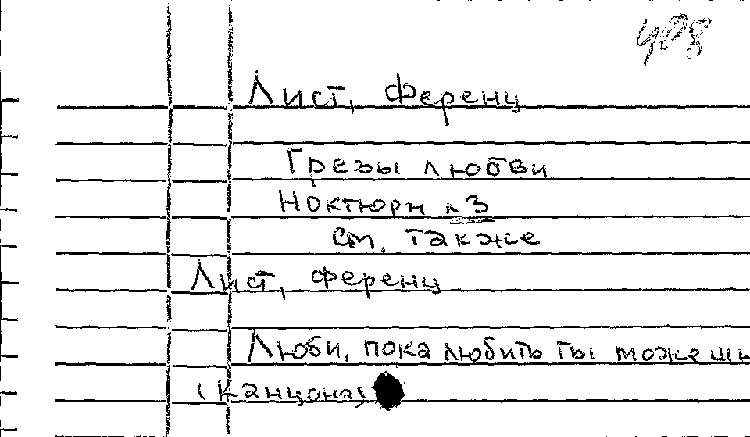 408
Лист, Ференц
Грезы любви
Ноктюрн №3
см. также
Лист, Ференц
Люби, пока любить ты можешь
(Канцона)